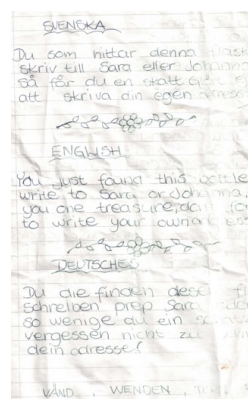 SVENSKA
Du som hittar denna
skriv till Sara eller Johanna
så får du en skatt
att skriva din egen adress
ENGLISH
You just found this bottle
write to Sara or Johanna
you one treasure, don't
to write your own
DEUTSCHES
Du die finden
schreiben Sara
so wenige du ein
vergessen nicht zu
dein adresse!
VÄND, WENDEN,